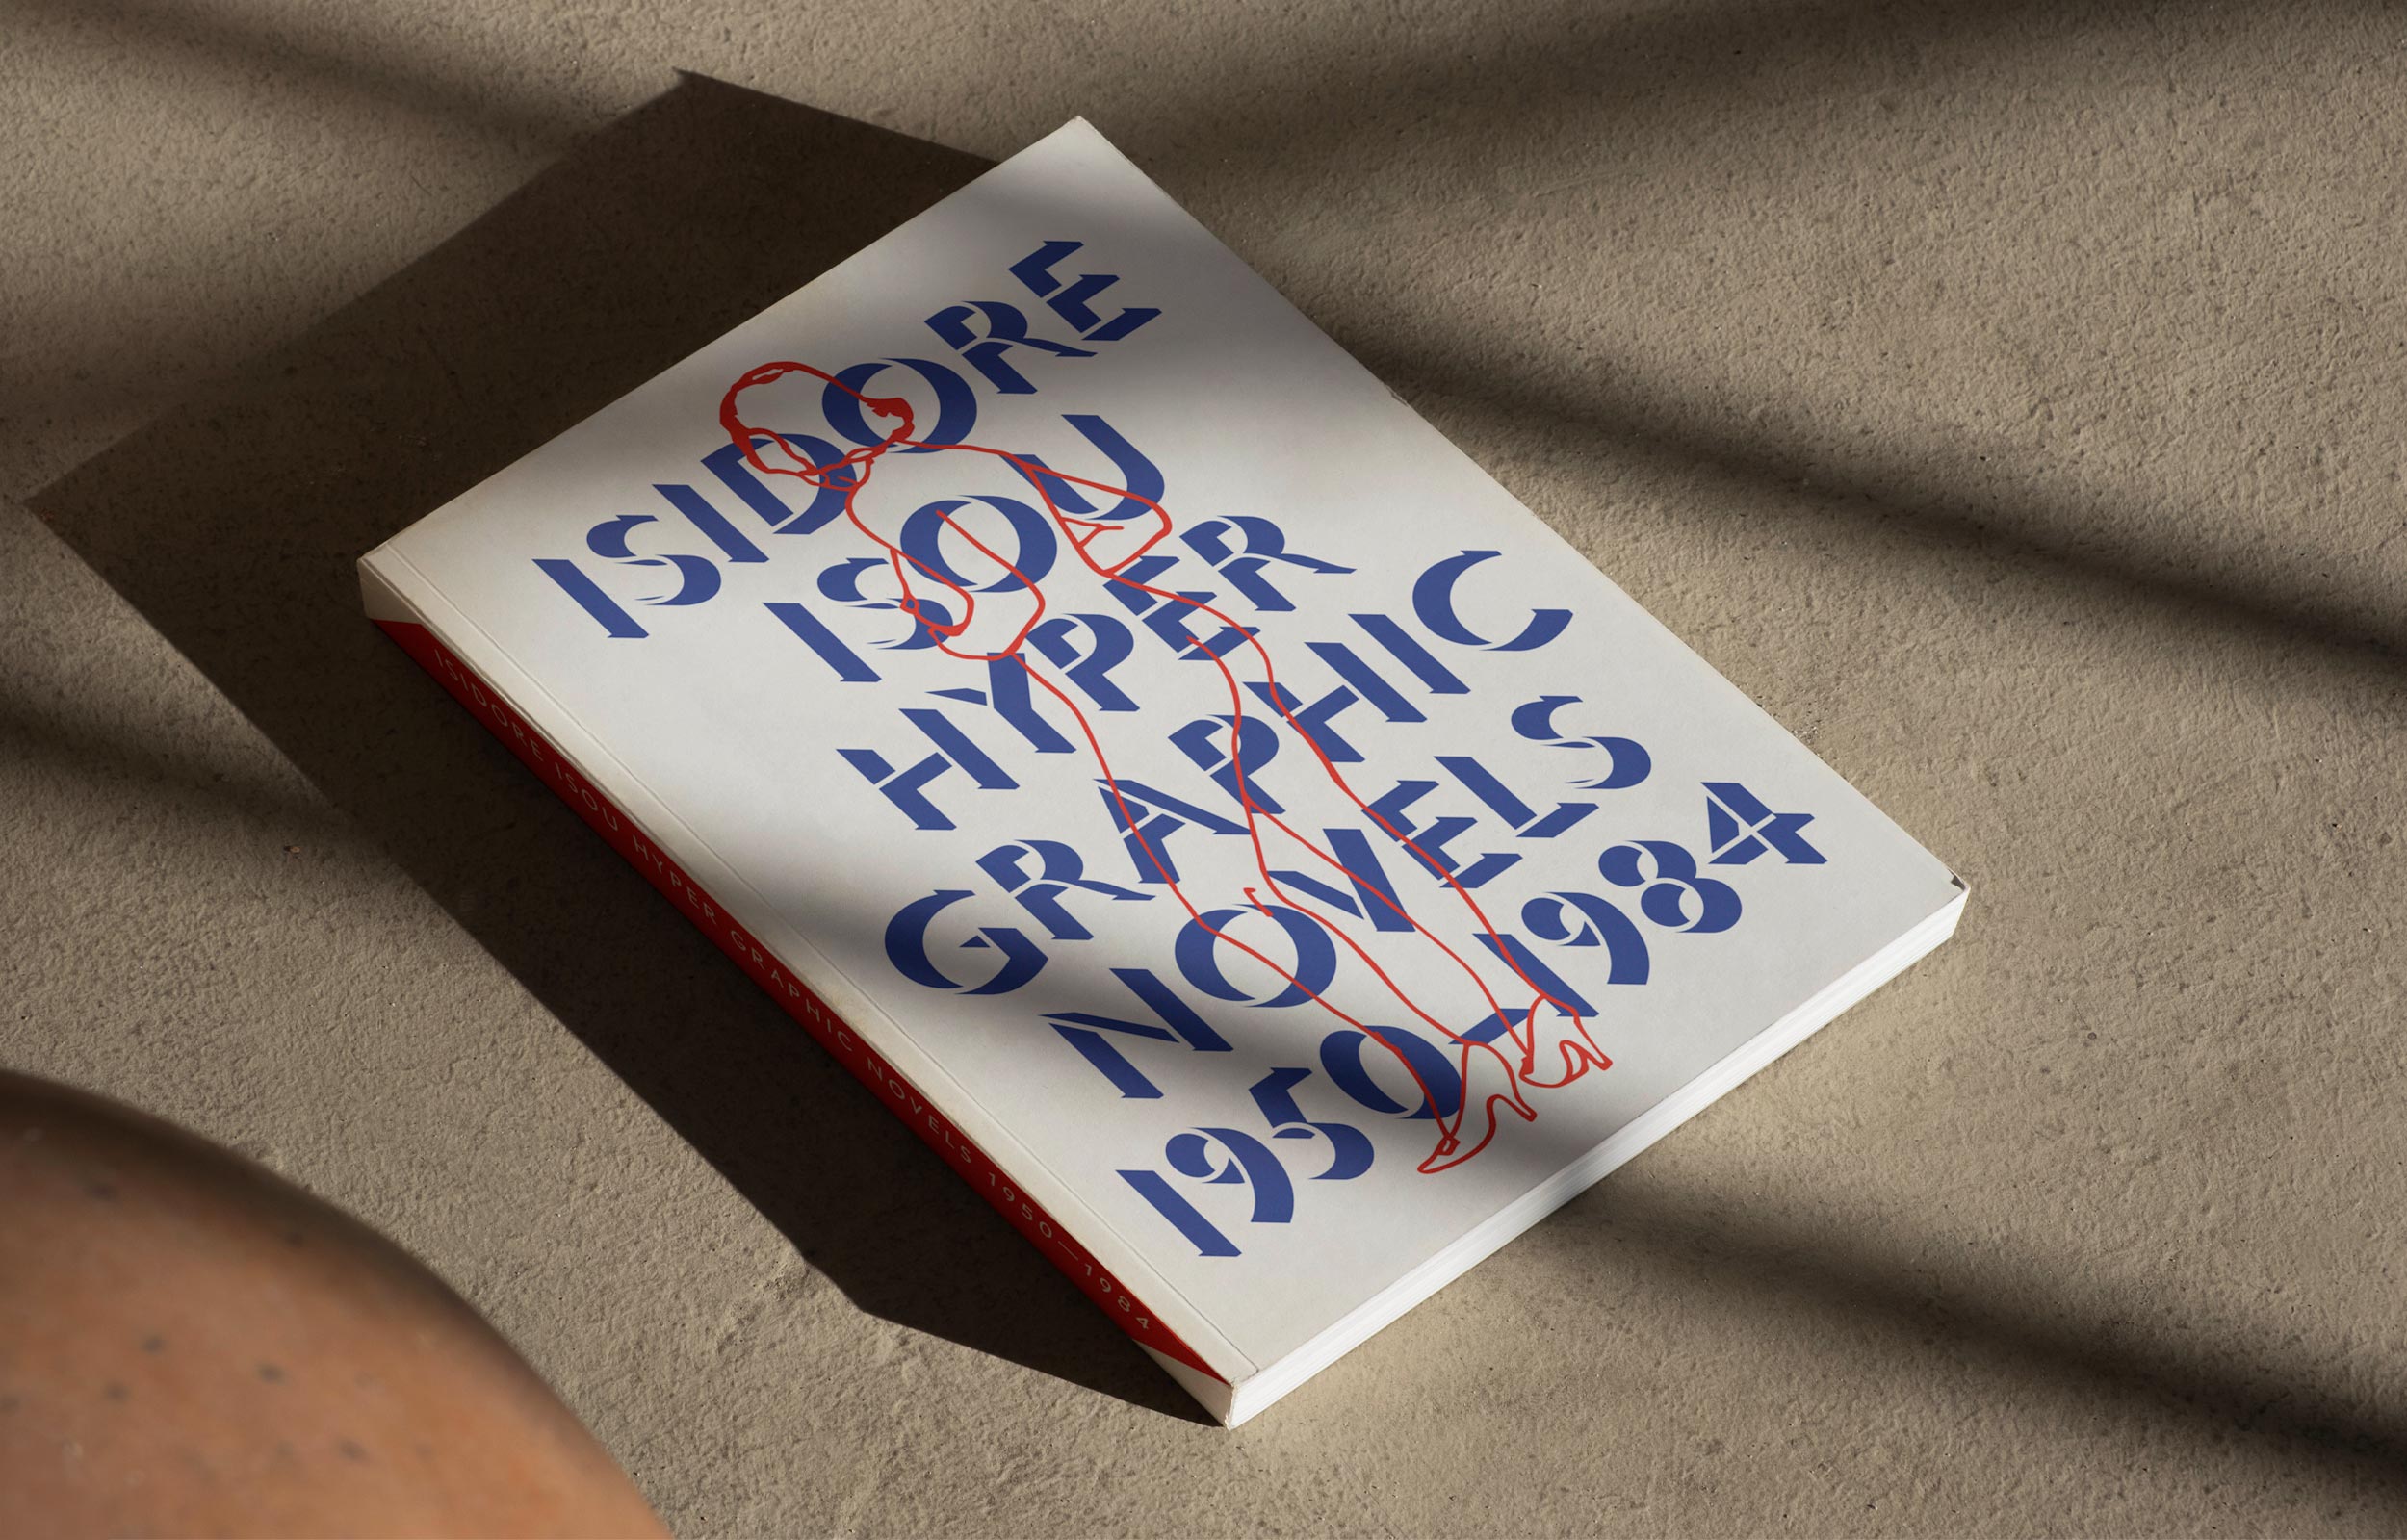 ISIDORE
ISOU
HYPER
GRAPHIC
NOVELS
1950–1984
ISIDORE ISOU HYPER GRAPHIC NOVELS 1950—1984